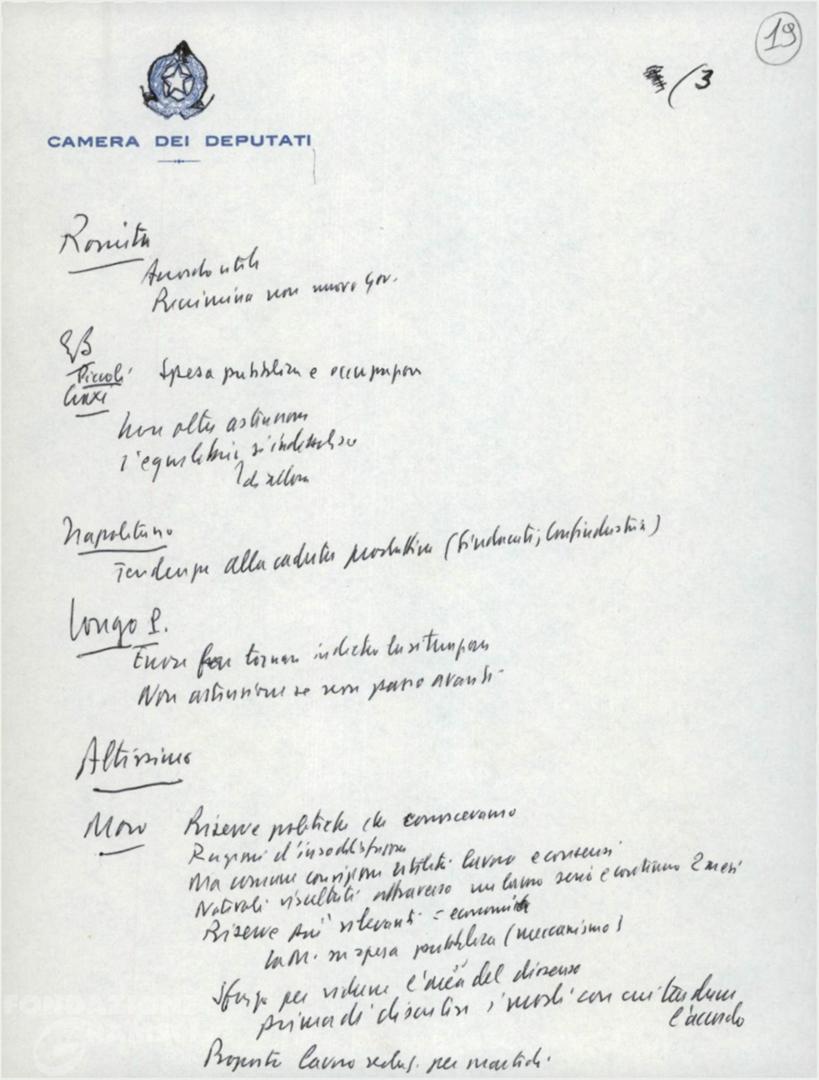 19
/3
CAMERA DEI DEPUTATI
Romita
Accordo utile
Recrimina non nuovo gov.
EB
Piccoli Spesa pubblica e occupazione
Craxi
Non oltre astensione
l'equilibrio si indebolisce
di allora
Napolitano
Tendenza alla caduta produttiva (Sindacati; Confindustria)
Longo P.
tornare indietro la situazione
Non astensione se non passo avanti
Altissimo
Moro Riserve politiche che conoscevamo
Ragioni d'insoddisfazione
Ma comune convinzione utilità lavoro e consensi
Notevoli risultati attraverso un lavoro serio e continuo 2 mesi
Riserve più rilevanti = economia
su spesa pubblica (meccanismo)
Sforzo per ridurre l'area del dissenso
prima di discutere i modi con cui tradurre
l'accordo
Proposta lavoro per martedì.
FONDAZIONE
GRAMSCI